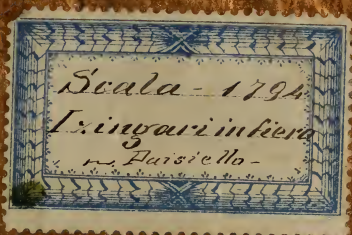 Scala - 1794
I zingari in fiera
~ Paisiello -